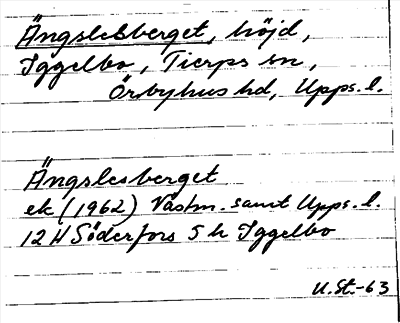 Ängslesberget, höjd,
Iggelbo, Tierps sn,
Örbyhus hd, Upps. l.
Ängslesberget
ek (1962) Västm. samt Upps. l.
12 H Söderfors 5 h Iggelbo
U.St.-63